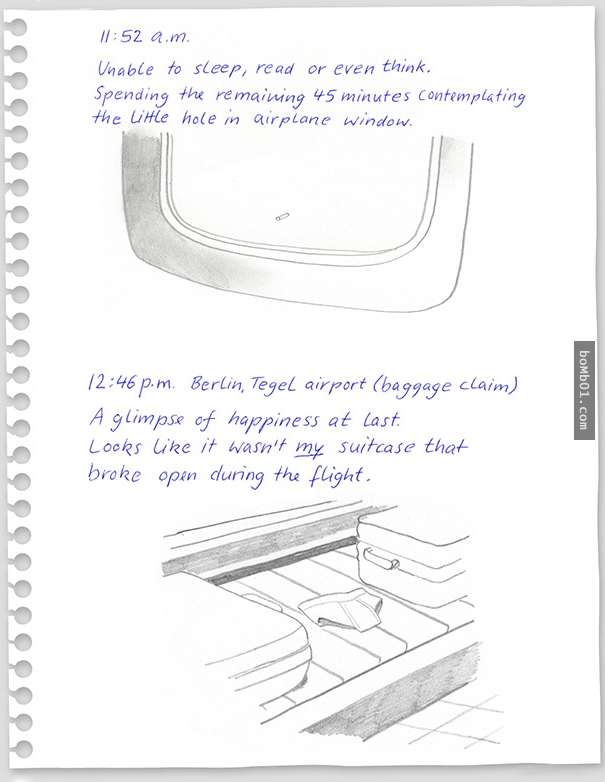 11:52 a.m.
Unable to sleep, read or even think.
Spending the remaining 45 minutes contemplating
the little hole in airplane window.
12:46 p.m. Berlin, Tegel airport (baggage claim)
A glimpse of happiness at last.
Looks like it wasn't my suitcase that
broke open during the flight.
bomb01.com